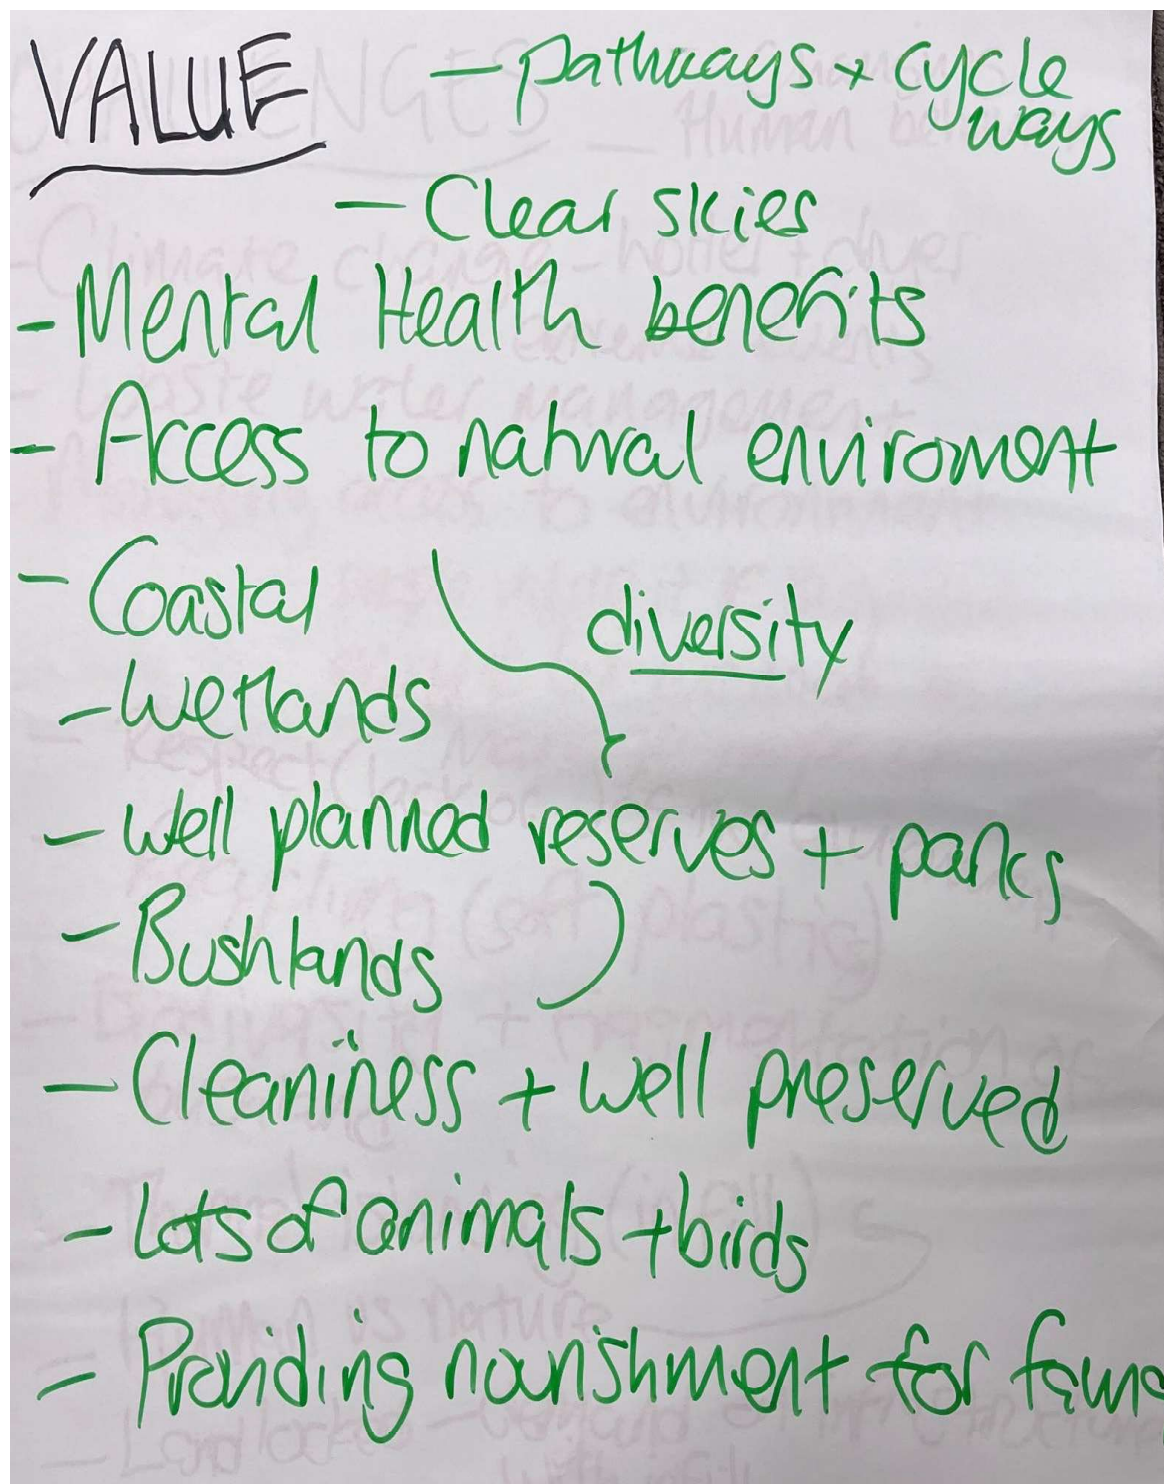 VALUE
- pathways + cycle
ways
- Clear skies
- Mental Health benefits
- Access to natural enviroment
- Coastal
diversity
- Wetlands
- Well planned reserves + parks
- Bushlands
- Cleaniness + well preserved
- Lots of animals + birds
- Providing nourishment for fauna